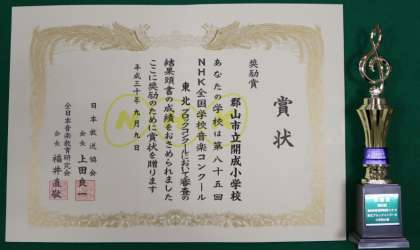 賞状
奨励賞
郡山市立開成小学校
あなたの学校は第八十五回
NHK全国学校音楽コンクール
東北ブロックコンクールにおいて審査の
結果頭書の成績をおさめられました
ここに奨励のために賞状を贈ります
平成三十年九月九日
日本放送協会
会長 上田良一
全日本音楽教育研究会
会長 福井直敬